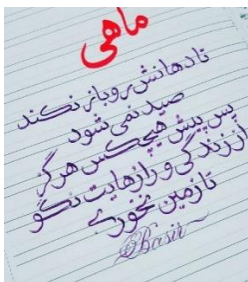 ماهی
تا دهانش رو باز نکند
صید نمی شود
پس پیش هیچکس هرگز
از زندگی و رازهایت نگو
تا زمین نخوری
Basir